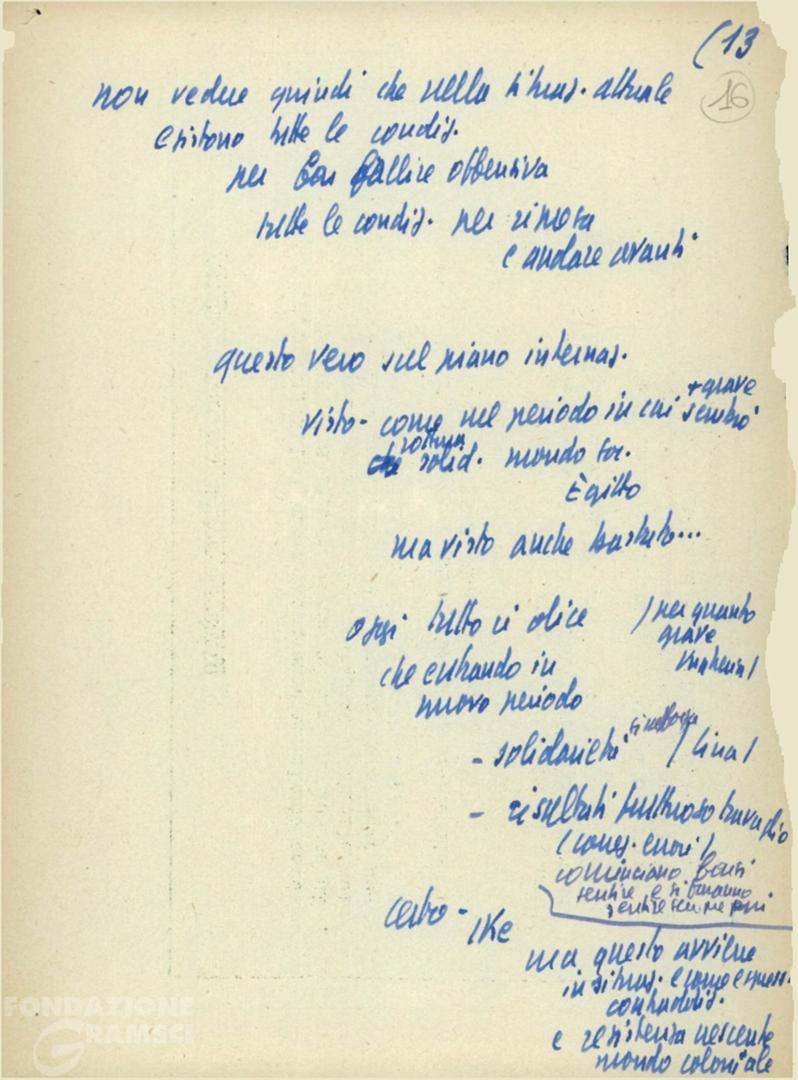 (13
16
non vedere quindi che nella situaz. attuale
esistono tutte le condiz.
per offensiva
tutte le condiz. per ripresa
e andare avanti
questo vero sul piano internaz.
visto - come nel periodo in cui sembrò + grave
rottura solid. mondo soc.
Egitto
ma visto anche
oggi tutto ci dice / per quanto
grave
Ungheria /
che entrando in
nuovo periodo
- solidarietà si rafforza / Cina /
- risultati fruttuoso travaglio
(cons. errori)
cominciano farsi
sentire e si faranno
sentire sempre più
certo - IKe
ma questo avviene
in situaz. e come espress.
contraddiz.
e resistenza crescente
mondo coloniale
FONDAZIONE
GRAMSCI